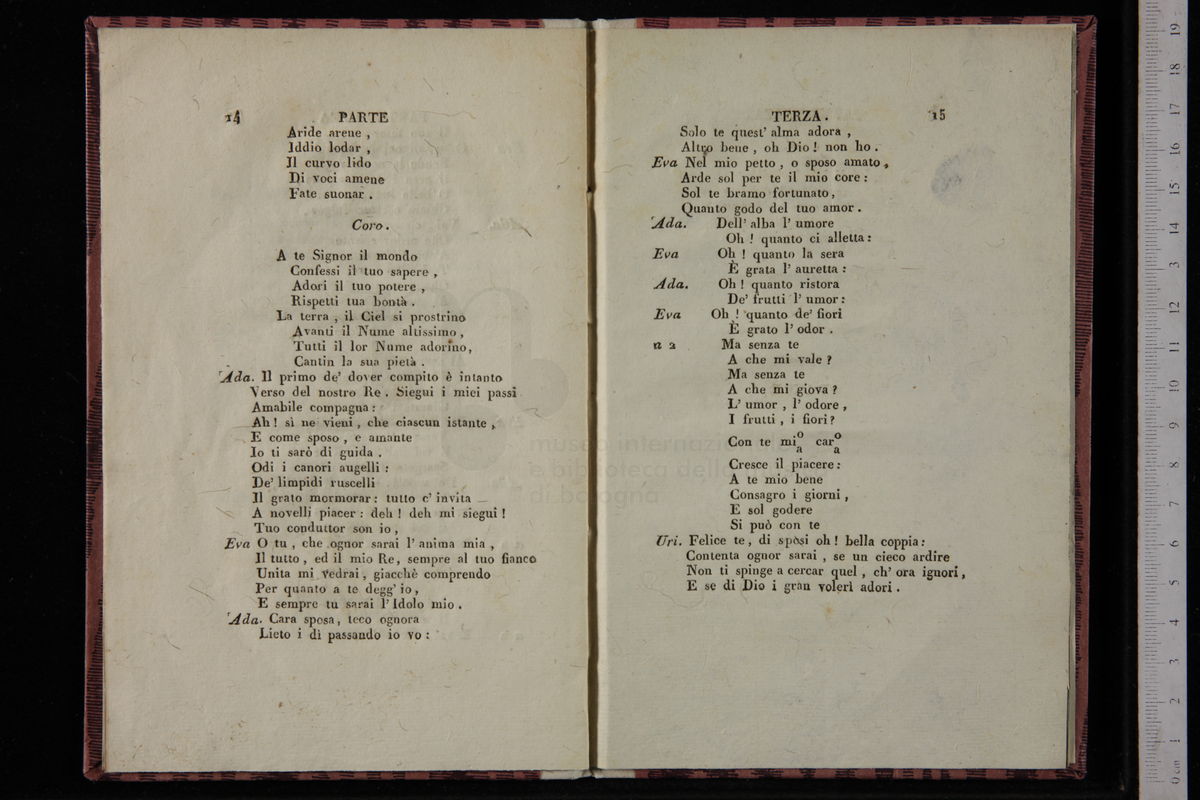 14 PARTE
Aride arene ,
Iddio lodar ,
Il curvo lido
Di voci amene
Fate suonar .
Coro .
A te Signor il mondo
Confessi il tuo sapere ,
Adori il tuo potere ,
Rispetti tua bontà .
La terra , il Ciel si prostrino
Avanti il Nume altissimo ,
Tutti il lor Nume adorino,
Cantin la sua pietà .
Ada. Il primo de' dover compito è intanto
Verso del nostro Re . Siegui i miei passi
Amabile compagna :
Ah ! sì ne vieni , che ciascun istante ,
E come sposo , e amante
Io ti sarò di guida .
Odi i canori augelli :
De' limpidi ruscelli
Il grato mormorar : tutto c' invita
A novelli piacer : deh ! deh mi siegui !
Tuo conduttor son io ,
Eva O tu , che ognor sarai l' anima mia ,
Il tutto , ed il mio Re, sempre al tuo fianco
Unita mi vedrai , giacchè comprendo
Per quanto a te degg' io ,
E sempre tu sarai l' Idolo mio .
Ada. Cara sposa , teco ognora
Lieto i dì passando io vo :
TERZA . 15
Solo te quest' alma adora ,
Altro bene , oh Dio ! non ho .
Eva Nel mio petto , o sposo amato ,
Arde sol per te il mio core :
Sol te bramo fortunato ,
Quanto godo del tuo amor .
Ada. Dell' alba l' umore
Oh ! quanto ci alletta :
Eva Oh ! quanto la sera
È grata l' auretta :
Ada. Oh ! quanto ristora
De' frutti l' umor :
Eva Oh ! quanto de' fiori
È grato l' odor .
a 2 Ma senza te
A che mi vale ?
Ma senza te
A che mi giova ?
L' umor , l' odore ,
I frutti , i fiori ?
Con te mi o/a car o/a
Cresce il piacere :
A te mio bene
Consagro i giorni ,
E sol godere
Si può con te
Uri. Felice te , di sposi oh ! bella coppia :
Contenta ognor sarai , se un cieco ardire
Non ti spinge a cercar quel , ch' ora ignori ,
E se di Dio i gran voleri adori .
museo internazionale
e biblioteca della
di bologna
0 cm 1 2 3 4 5 6 7 8 9 10 11 12 13 14 15 16 17 18 19